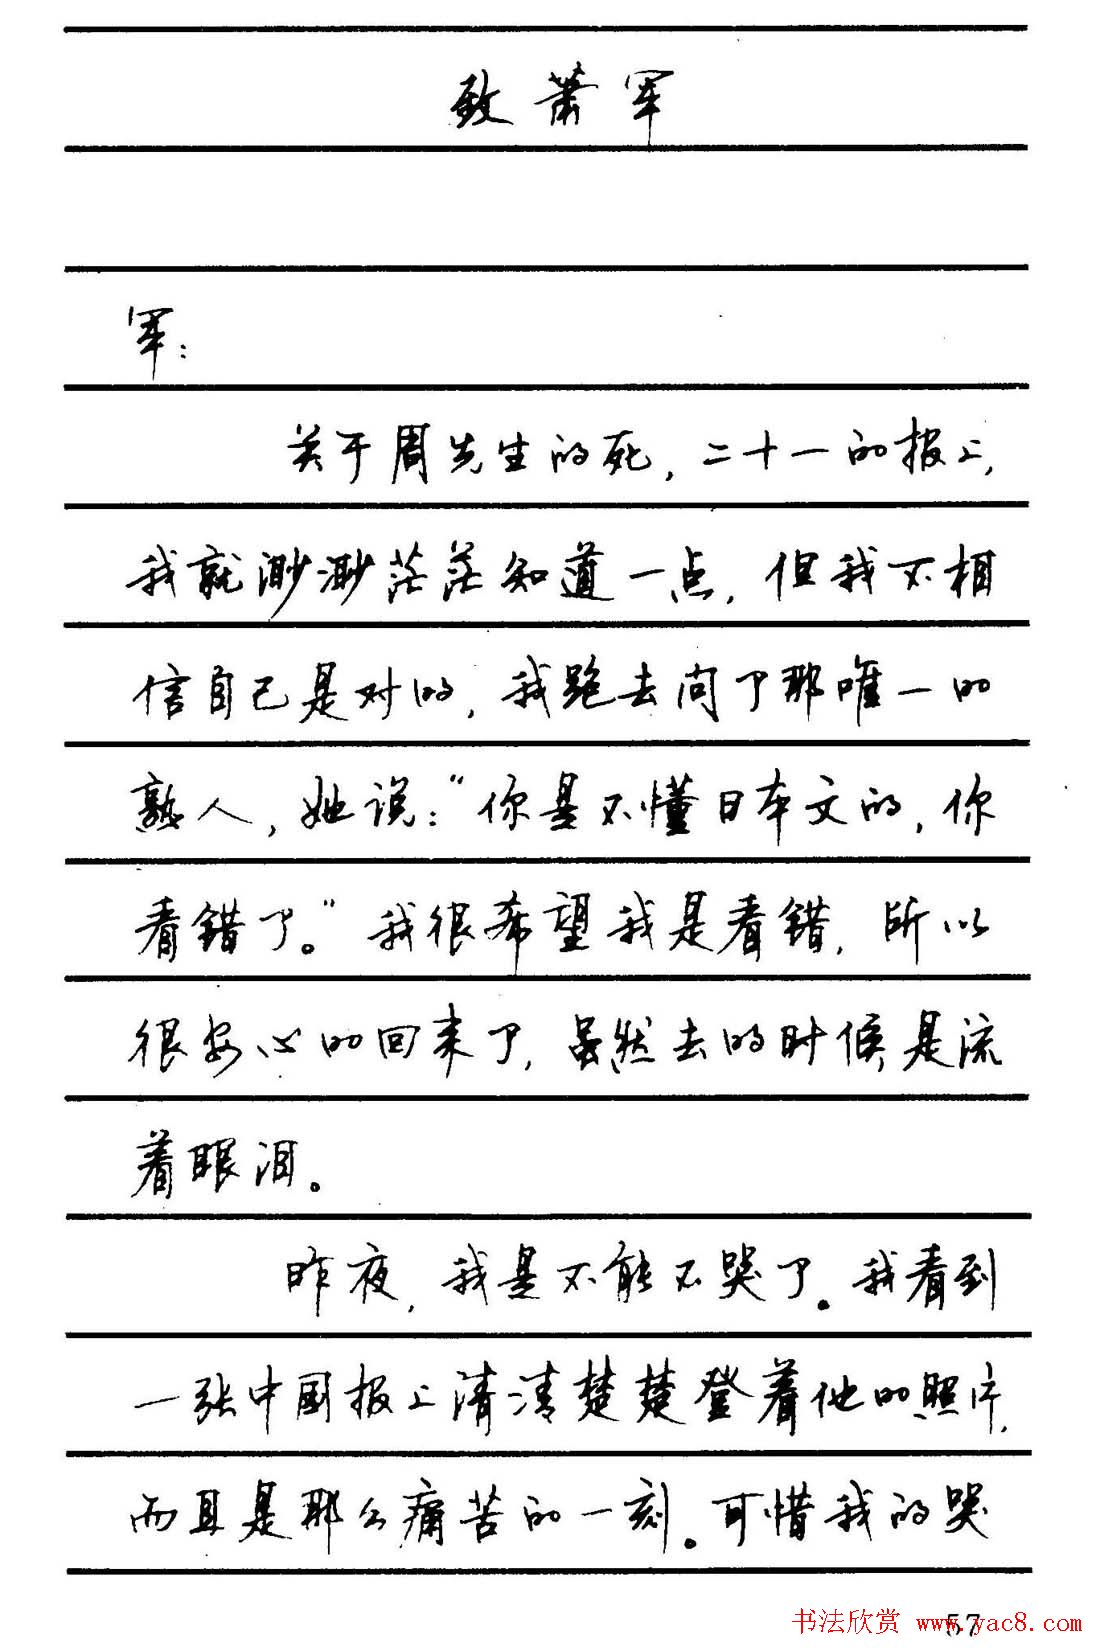 致萧军
军：
关于周先生的死，二十一的报上，
我就渺渺茫茫知道一点，但我不相
信自己是对的，我跑去问了那唯一的
熟人，她说：“你是不懂日本文的，你
看错了。”我很希望我是看错，所以
很安心的回来了，虽然去的时候是流
着眼泪。
昨夜，我是不能不哭了。我看到
一张中国报上清清楚楚登着他的照片，
而且是那么痛苦的一刻。可惜我的哭
57
书法欣赏 www.yac8.com